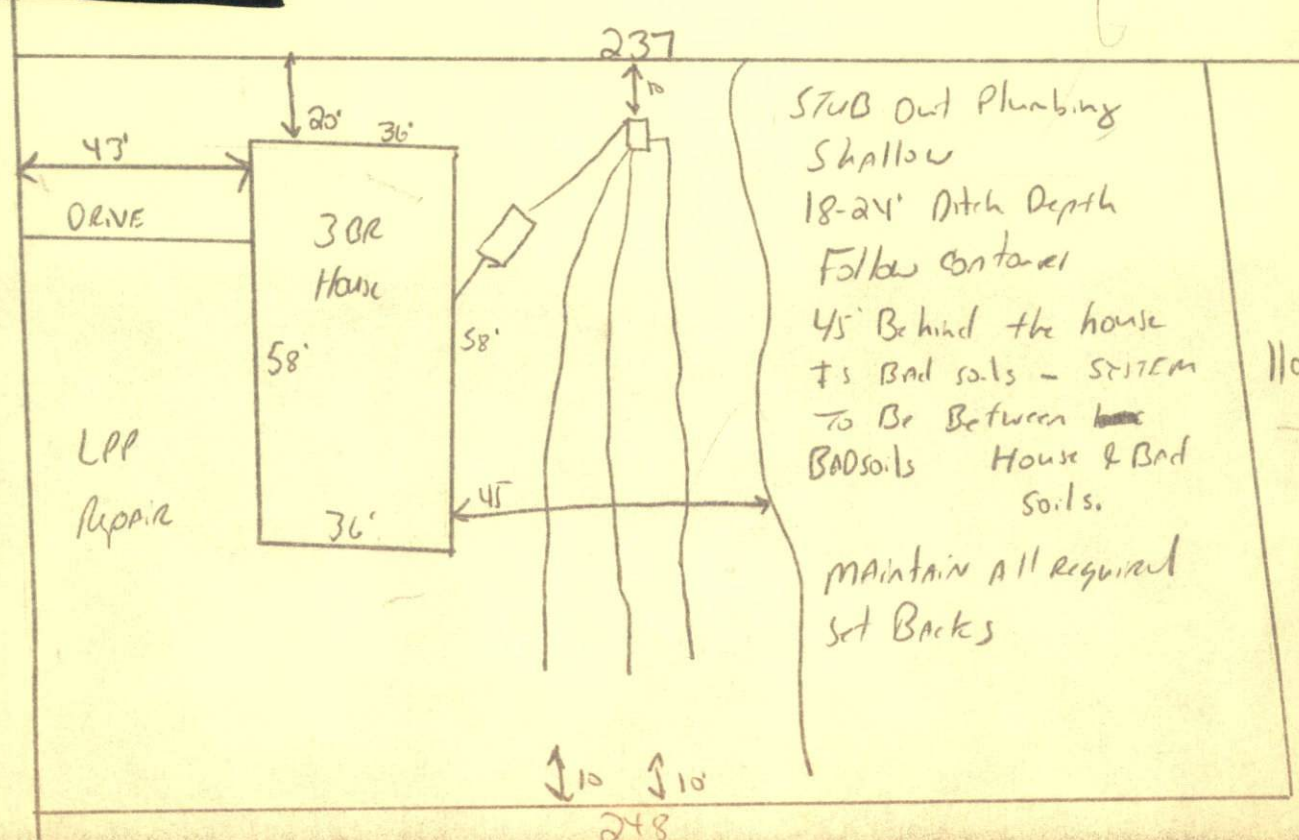 237
20'
36'
10
43'
DRIVE
3 BR
House
58'
58'
LPP
Repair
36'
45
STUB Out Plumbing
Shallow
18-24" Ditch Depth
Follow Contouer
45' Behind the house
Is Bad soils - SYSTEM
To Be Between
BADsoils House & Bad
soils.
MAintAin All Required
Set BAcks
110
10
10'
248